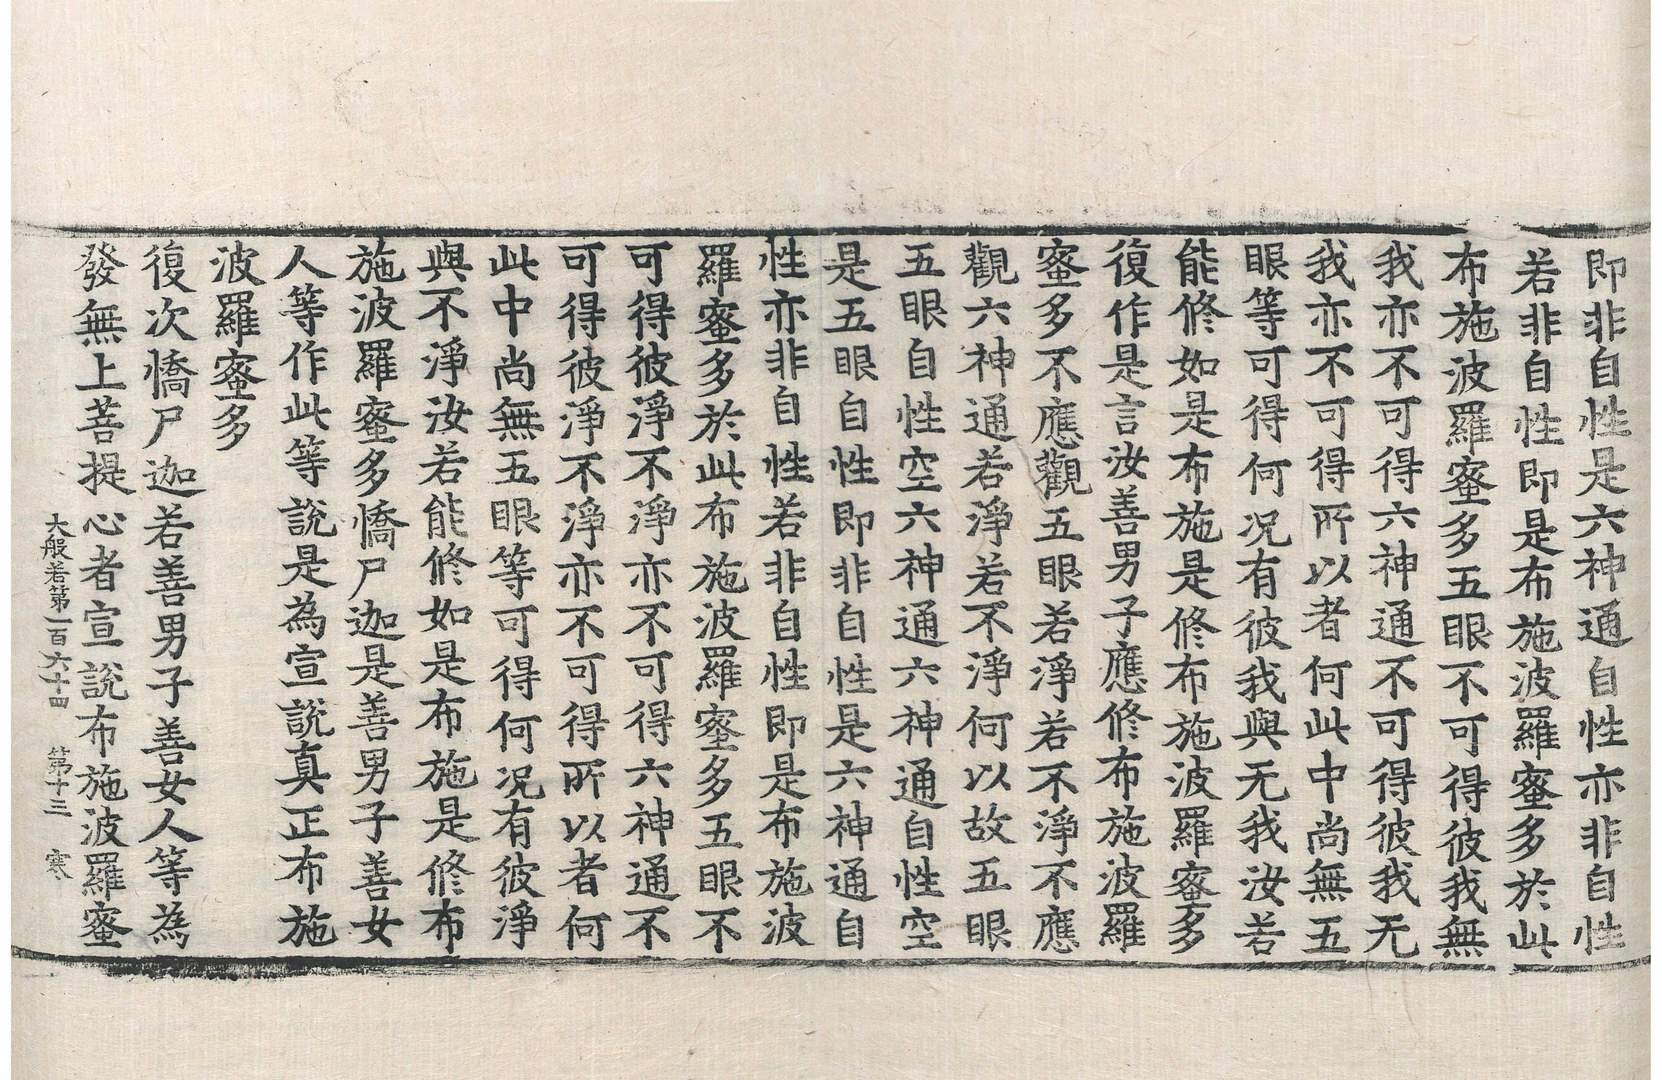 即非自性是六神通自性亦非自性
若非自性即是布施波羅蜜多於此
布施波羅蜜多五眼不可得彼我無
我亦不可得六神通不可得彼我无
我亦不可得所以者何此中尚無五
眼等可得何况有彼我與无我汝若
能修如是布施是修布施波羅蜜多
復作是言汝善男子應修布施波羅
蜜多不應觀五眼若淨若不淨不應
觀六神通若淨若不淨何以故五眼
五眼自性空六神通六神通自性空
是五眼自性即非自性是六神通自
性亦非自性若非自性即是布施波
羅蜜多於此布施波羅蜜多五眼不
可得彼淨不淨亦不可得六神通不
可得彼淨不淨亦不可得所以者何
此中尚無五眼等可得何况有彼淨
與不淨汝若能修如是布施是修布
施波羅蜜多憍尸迦是善男子善女
人等作此等說是為宣說真正布施
波羅蜜多
復次憍尸迦若善男子善女人等為
發無上菩提心者宣說布施波羅蜜
大般若第一百六十四 第十三 寒